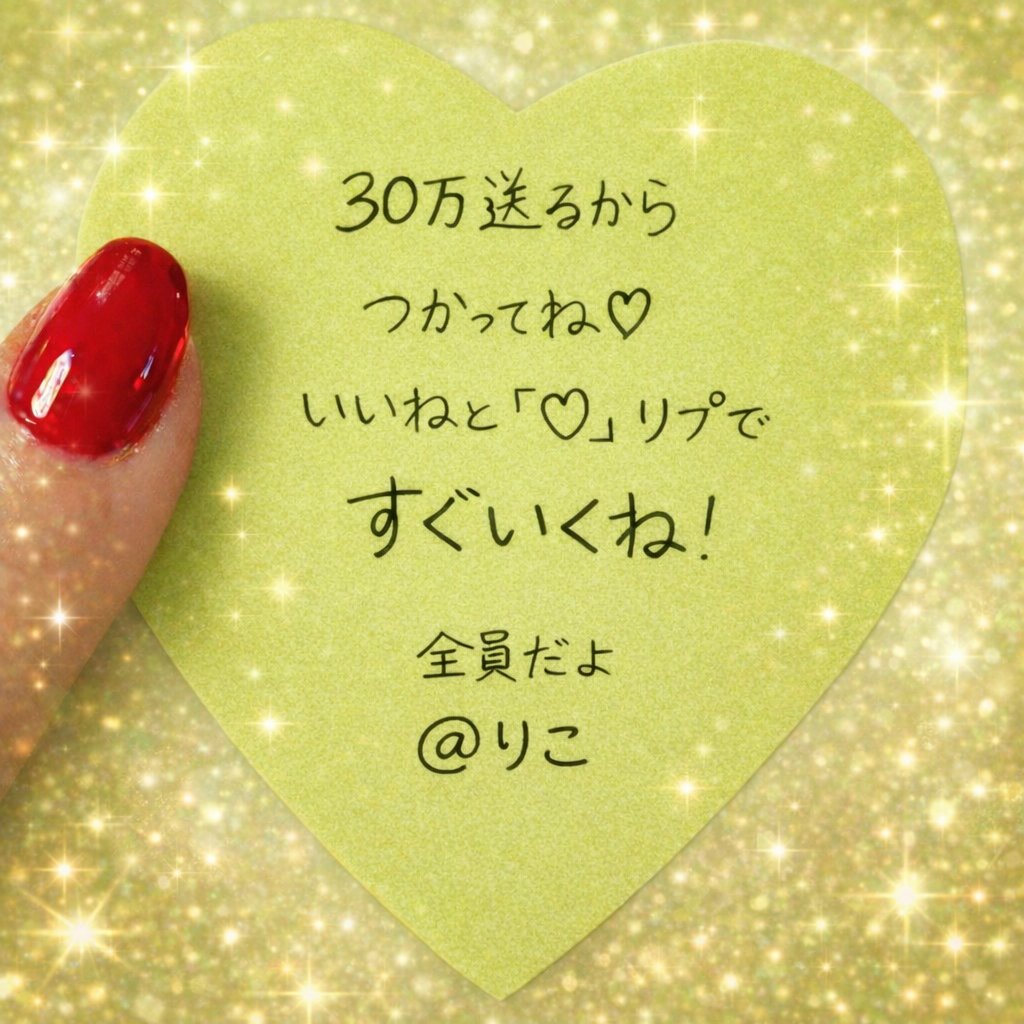 30万送るから
つかってね♡
いいねと「♡」リプで
すぐいくね!
全員だよ
@りこ